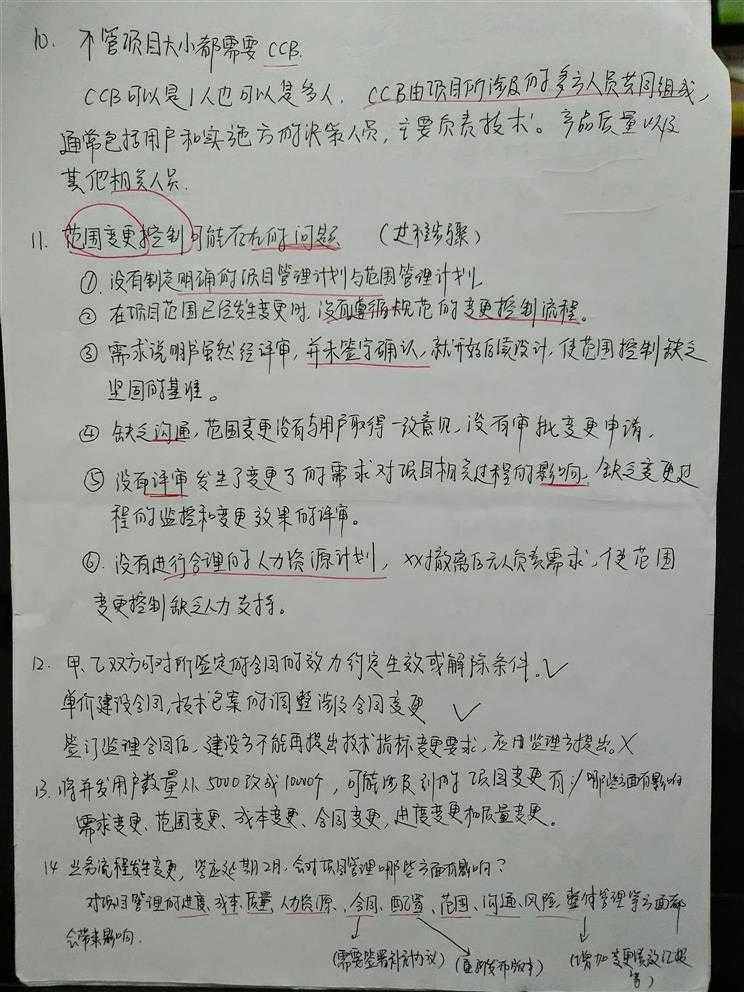 10. 不管项目大小都需要CCB.
CCB可以是1人也可以是多人. CCB由项目所涉及的多方人员共同组成,
通常包括用户和实施方的决策人员, 主要负责技术。产品质量以及
其他相关人员.
11. 范围变更控制可能存在的问题 (过程步骤)
①. 没有制定明确的项目管理计划与范围管理计划.
② 在项目范围已经发生变更时, 没有遵循规范的变更控制流程。
③ 需求说明书虽然经评审, 并未签字确认, 就开始后续设计, 使范围控制缺乏
坚固的基准。
④ 缺乏沟通, 范围变更没有与用户取得一致意见, 没有审批变更申请.
⑤ 没有评审发生了变更了的需求对项目相关过程的影响, 缺乏变更过
程的监控和变更效果的评审。
⑥. 没有进行合理的人力资源计划, XX撤离后无人负责需求, 使范围
变更控制缺乏人力支持。
12. 甲、乙双方可对所鉴定的合同的效力约定生效或解除条件。✓
单价建设合同, 技术方案的调整涉及合同变更 ✓
签订监理合同后, 建设方不能再提出技术指标变更要求, 应由监理方提出。X
13. 将并发用户数量从5000改成10000个, 可能涉及到的项目变更有:/哪些方面有影响
需求变更、范围变更、成本变更、合同变更, 进度变更和质量变更。
14 业务流程发生变更, 延期2月, 会对项目管理哪些方面有影响?
对项目管理的进度、成本、质量、人力资源、合同、配置、范围、沟通、风险、整体管理等方面都
会带来影响.
(需要签署补充协议) (重新发布版本) (增加变更绩效汇报
等)